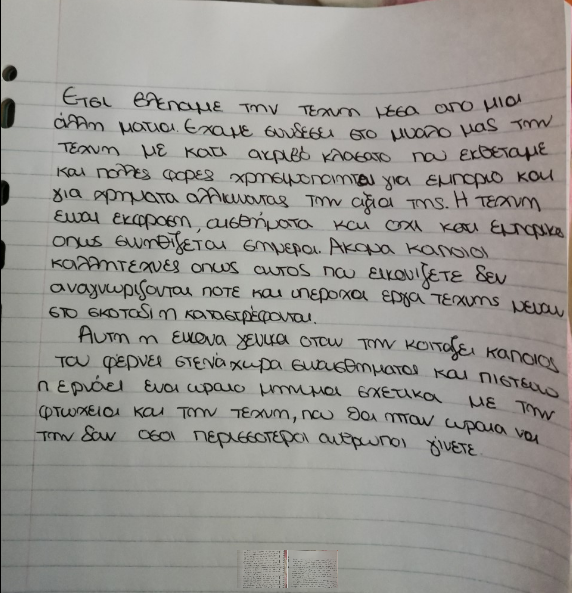 Ετσι βλεπαμε την τεχνη μεσα απο μια
άλλη ματια. Εχαμε συνδεσει στο μυαλο μας την
τεχνη με κατι ακριβο κλασατο που εκθεταμε
και πολλες φορες χρησιμοποιηται για εμποριο και
για χρηματα αλλιωνοντας την αξια της. Η τεχνη
ειναι εκφραση, αισθηματα και οχι κατι εμπορικο
οπως συνηθίζεται σημερα. Ακομα καποιοι
καλλητεχνες οπως αυτος που εικονιζετε δεν
αναγνωριζονται ποτε και υπεροχα εργα τεχνης μενουν
στο σκοταδι η καταστρέφονται.
Αυτη η εικονα γενικα οταν την κοιταζει καποιος
του φέρνει στενάχωρα συναισθηματα και πιστευω
η
ενα ωραιο μηνυμα σχετικα με την
φτωχεια και την τεχνη, που θα ηταν ωραια να
την δουν οσοι περισσοτεροι ανθρωποι γίνετε.